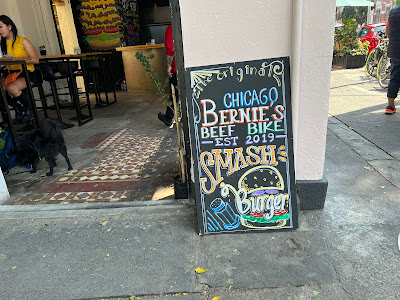 The original
CHICAGO
BERNIE'S
BEEF BIKE
EST 2019
SMASH
Burger